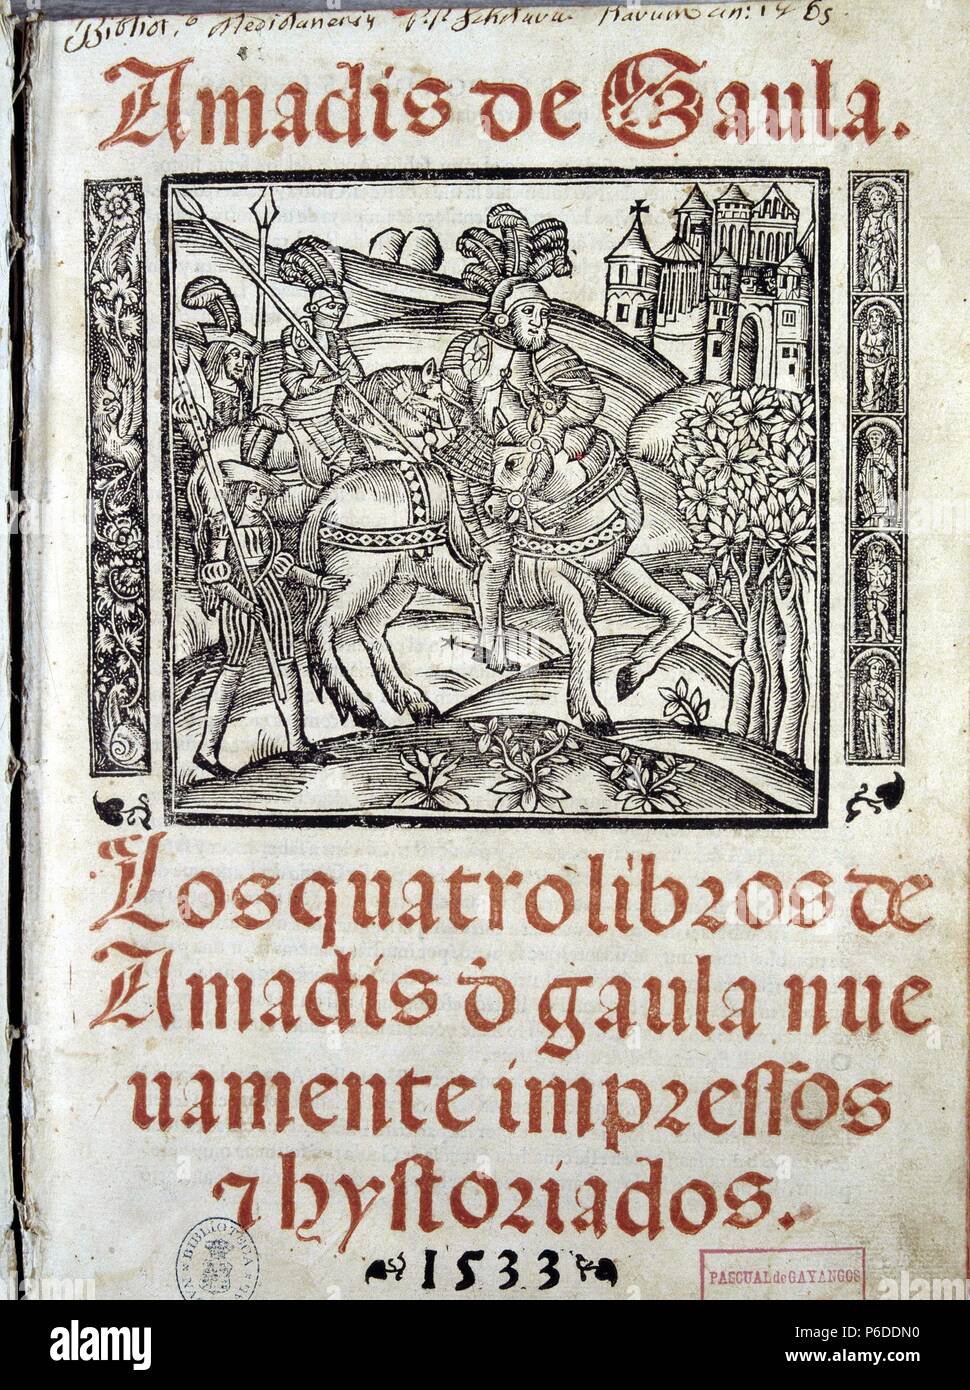 Bibliot.
Amadis de Gaula.
Los quatro libros de
Amadis đ gaula nue
uamente impressos
⁊ hystoriados.
1533
BIBLIOTECA
PASCUAL de GAYANGOS
alamy
Image ID: P6DDN0
www.alamy.com